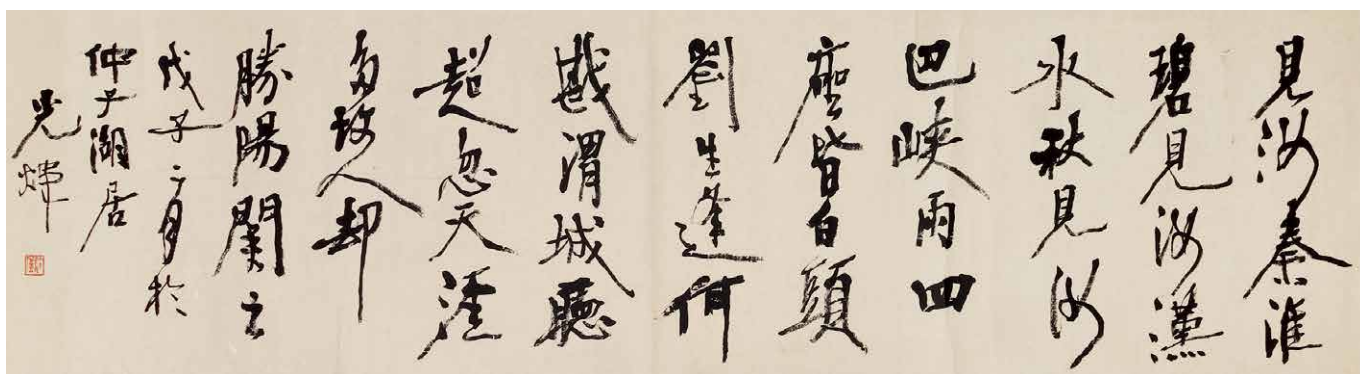 見汝秦淮
碧見汝漢
水秋見汝
巴峽雨四
座皆白頭
劉生逢何
戡渭城聽
超忽天涯
多故人却
勝陽關云
戊子二月於
仲子湖居
光煒